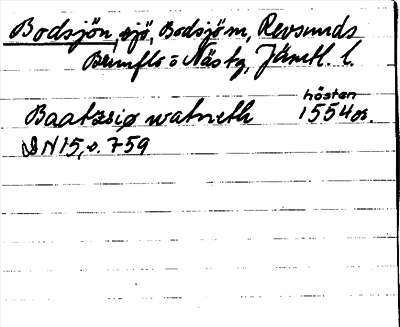 Bodsjön, sjö, Bodsjö m, Revsunds
Brunflo o Näs tg, Jämtl. l.
hösten
Baatzsiø watneth 1554 or.
DN 15, s. 759